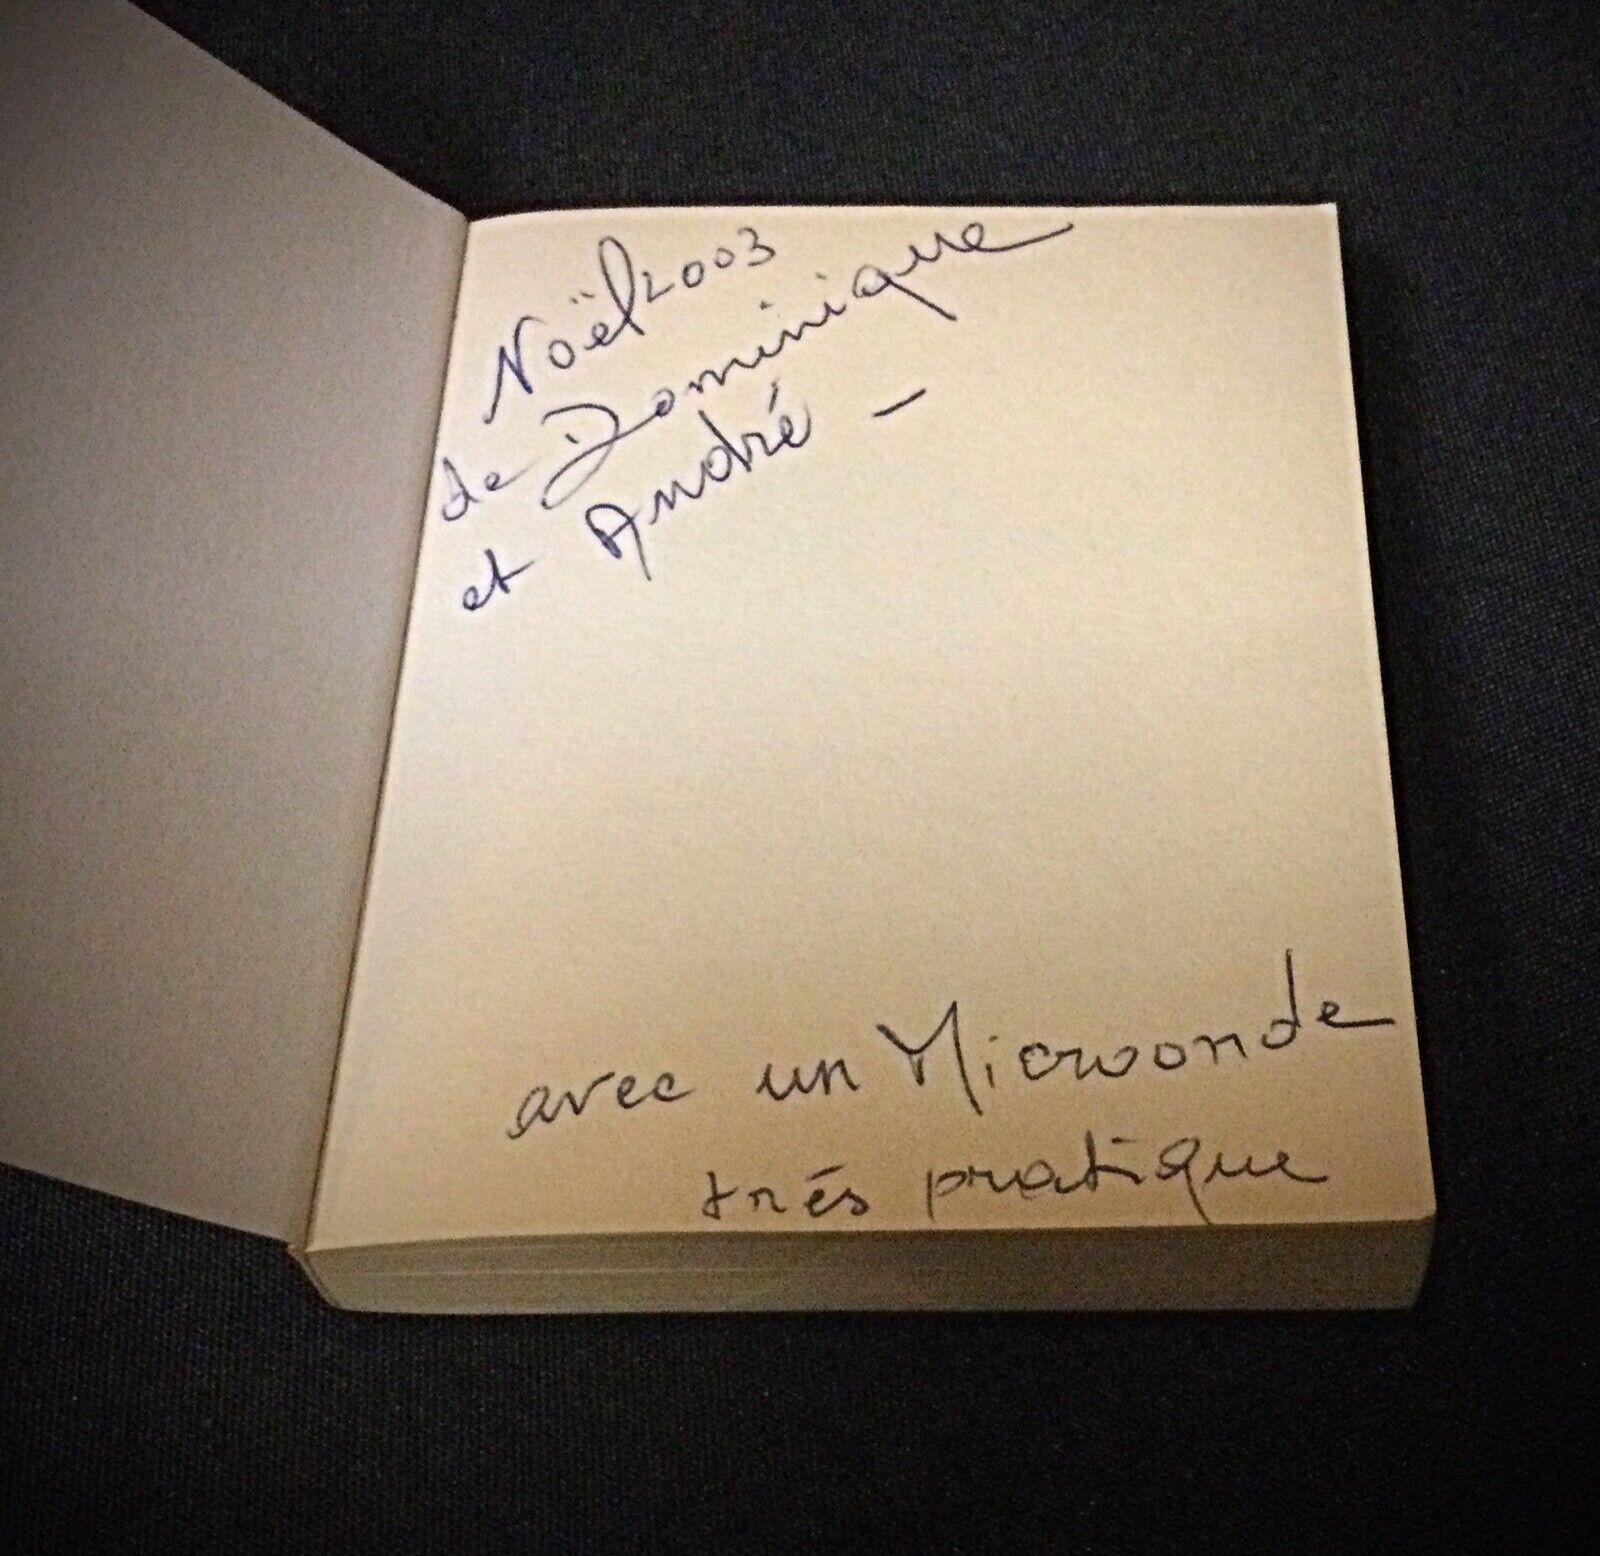 Noël 2003
de Dominique
et André –
avec un Microonde
trés pratique